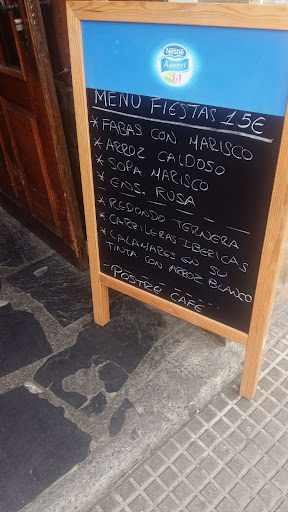 Nestlé
MENU FIESTAS 15€
* FABAS CON MARISCO
* ARROZ CALDOSO
* SOPA MARISCO
* ENS. RUSA
* REDONDO TERNERA
* CARRILERAS IBERICAS
* CALAMARES EN SU
TINTA CON ARROZ BLANCO
- POSTRE CAFE